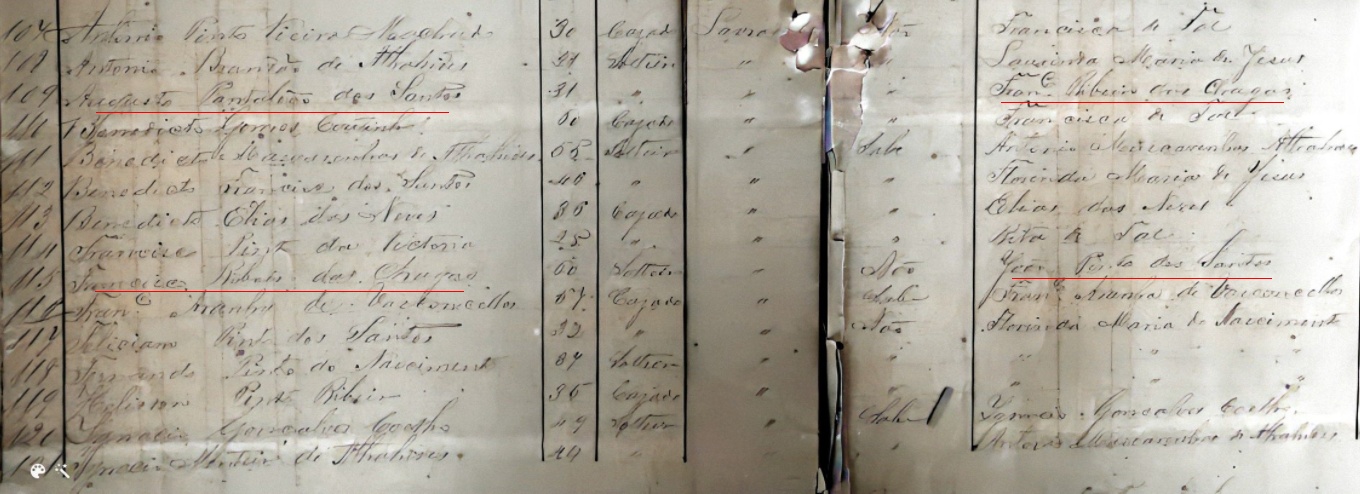 107 Antonio Pinto Vieira 30 Cazado Não Francisca de Tal
108 Antonio Brandão de Solteiro " " Maria de Jesus
109 Augusto Pantalião dos Santos 31 " " " Franco Ribeiro das Chagas
110 Benedicto Gomes Coutinho 60 Cazado " " Francisca de Tal
111 Benedicto Mascarenhas de 68 Solteiro " Sabe Antonio Mascarenhas
112 Benedicto Francisco dos Santos 46 " " " Florinda Maria de Jesus
113 Benedicto Elias das Neves 36 Cazado " " Elias das Neves
114 Francisco Pinto da Victoria 25 " " " Rita de Tal
115 Francisco Ribeiro das Chagas 60 Solteiro " Não João Pinto dos Santos
116 Franco Aranha de Vasconcellos 57 Cazado " Sabe Franco Aranha de Vasconcellos
117 Feliciano Pinto dos Santos 32 " " Não Florinda Maria do Nascimento
118 Fernando Pinto do Nascimento Solteiro " " " "
119 Pinto Ribeiro 36 Cazado " " "
120 Ignacio Gonsalves Coelho 49 Solteiro " Sabe Ignacio Gonsalves Coelho
Ignacio de 44 " " " Antonio Mascarenhas de